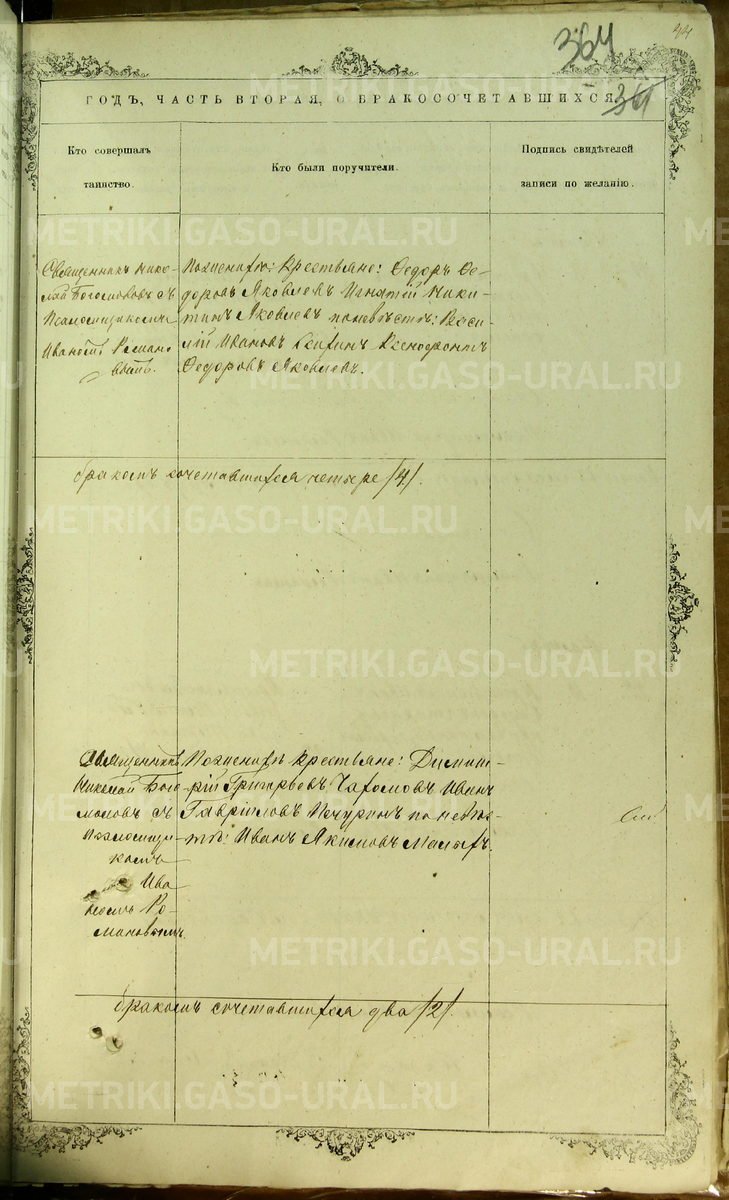 364
361
ГОДЪ, ЧАСТЬ ВТОРАЯ, О БРАКОСОЧЕТАВШИХСЯ
Кто совершалъ
таинство.
Кто были поручители.
Подпись свидѣтелей
записи по желанію.
METRIKI.GASO-URAL.RU
Священникъ Нико-
лай Богомоловъ съ
Псаломщикомъ
Иваномъ Романо
вымъ.
По женихѣ: Крестьяне: Ѳедоръ Ѳе-
доровъ Яковлевъ Игнатій Ники-
тинъ Яковлевъ по невѣстѣ: Васи-
лій Ивановъ Ксенофонтъ
Ѳедоровъ Яковлевъ.
бракомъ сочетавшихся четыре /4/.
Священникъ
Николай Бого
моловъ съ
Псаломщи
комъ
Ива
номъ Ро-
мановымъ
По женихѣ крестьяне: Димит-
рій Григорьевъ Иванъ
Гавріиловъ Печуринъ по невѣс-
тѣ: Иванъ Якимовъ Малыхъ.
бракомъ сочетавшихся два /2/.